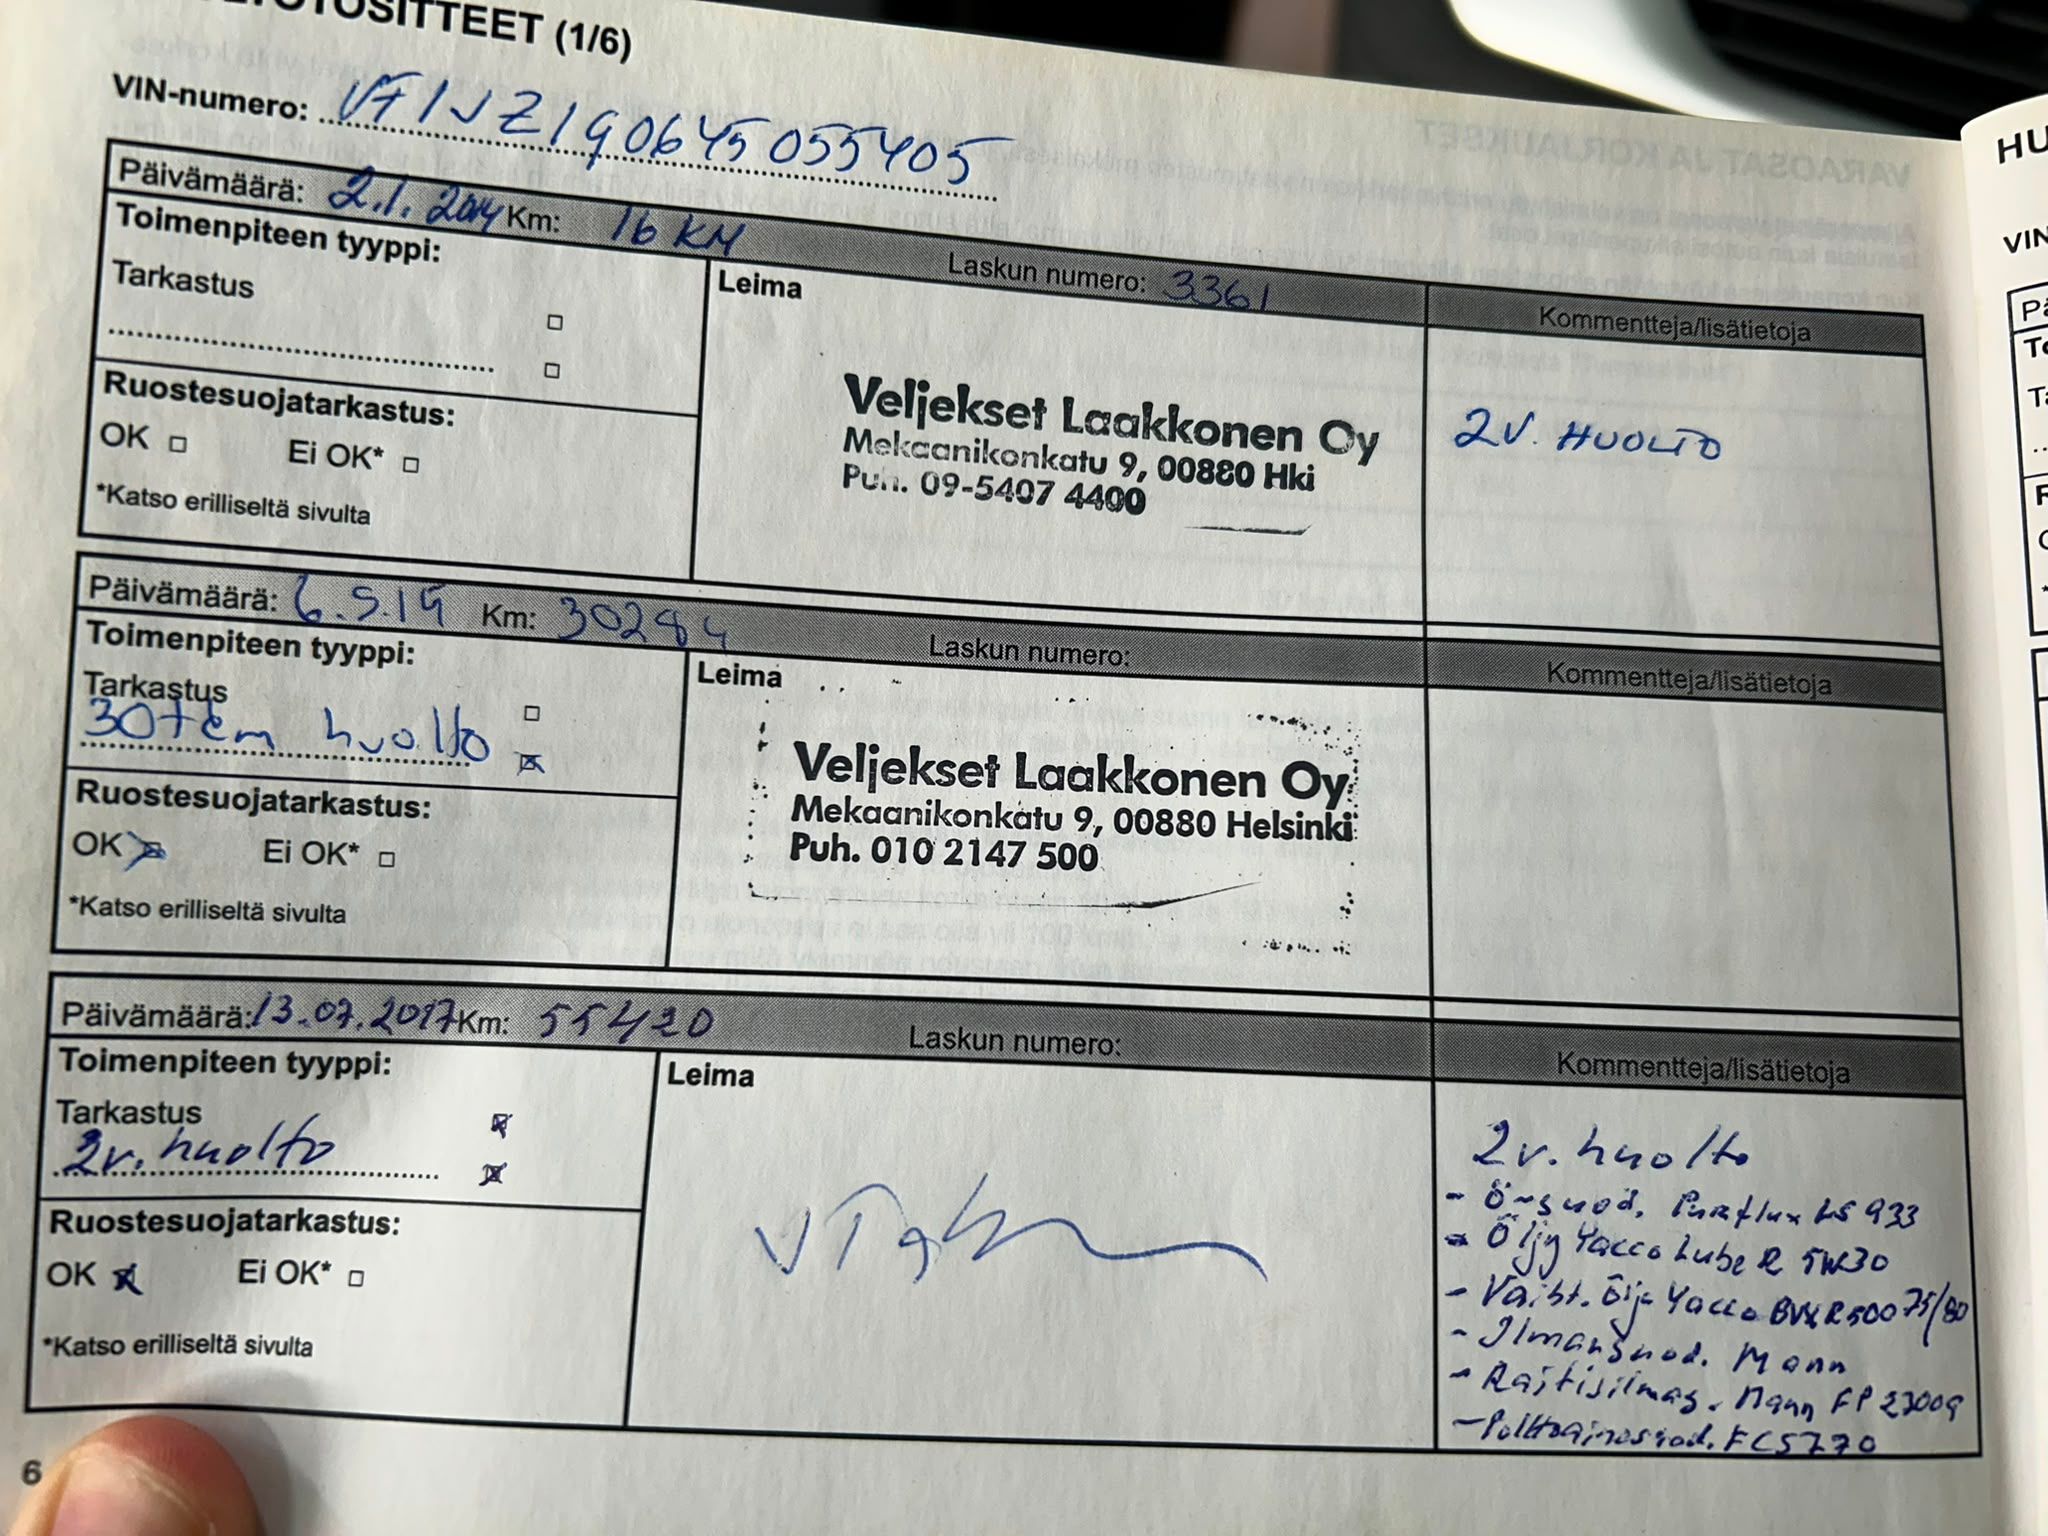 TOSITTEET (1/6)
VIN-numero: VF1JZ190645055405
Päivämäärä: 2.1.2014 Km: 16 KM Laskun numero: 3361 Kommentteja/lisätietoja
Toimenpiteen tyyppi:
Tarkastus
Leima
Veljekset Laakkonen Oy
Mekaanikonkatu 9, 00880 Hki
Puh. 09-5407 4400
2V. HUOLTO
Ruostesuojatarkastus:
OK Ei OK*
*Katso erilliseltä sivulta
Päivämäärä: 6.5.15 Km: 30284 Laskun numero: Kommentteja/lisätietoja
Toimenpiteen tyyppi:
Tarkastus
30tkm huolto
Leima
Veljekset Laakkonen Oy
Mekaanikonkatu 9, 00880 Helsinki
Puh. 010 2147 500
Ruostesuojatarkastus:
OK Ei OK*
*Katso erilliseltä sivulta
Päivämäärä: 13.07.2017 Km: 55420 Laskun numero: Kommentteja/lisätietoja
Toimenpiteen tyyppi:
Tarkastus
2v. huolto
Leima
Ruostesuojatarkastus:
OK Ei OK*
*Katso erilliseltä sivulta
2v. huolto
- Ö-suod. Purflux LS 933
- Öljy Yacco Lube R 5W30
- Vaiht. öljy Yacco BVX R500 75/80
- Ilmansuod. Mann
- Raitisilmas. Mann FP 23009
- Polttoainesuod. FCS770
6
HU
VIN
VARAOSAT JA KORJAUKSET